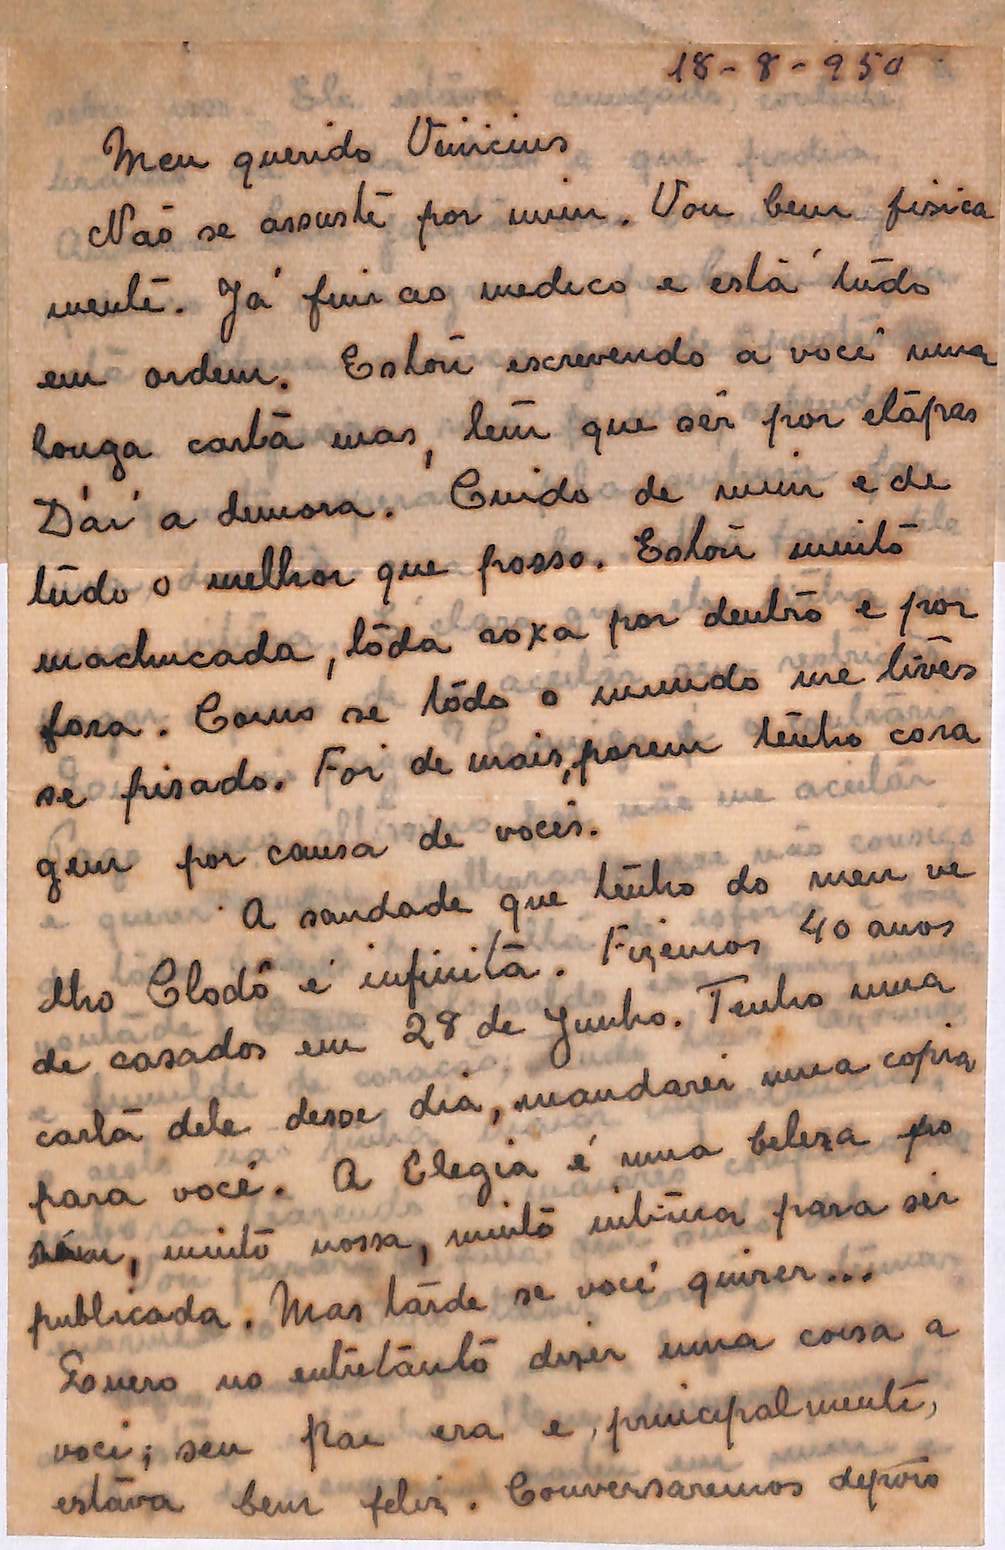 18-8-950
Meu querido Vinicius
Não se assuste por mim. Vou bem fisica
mente. Já fui ao medico e está tudo
em ordem. Estou escrevendo a você uma
longa carta mas, tem que ser por etapas
Daí a demora. Cuido de mim e de
tudo o melhor que posso. Estou muito
machucada, tôda roxa por dentro e por
fora. Como se todo o mundo me tives
se pisado. Foi de mais, porem tenho cora
gem por causa de voces.
A saudade que tenho do meu ve
lho Clodô é infinita. Fizemos 40 anos
de casados em 28 de Junho. Tenho uma
carta dele desse dia, mandarei uma copia
para você. A Elegia é uma beleza po
rém, muito nossa, muito intima para ser
publicada. Mas tarde se você quizer...
Quero no entretanto dizer uma coisa a
voce; seu Pai era e, principalmente,
estava bem feliz. Conversaremos depois